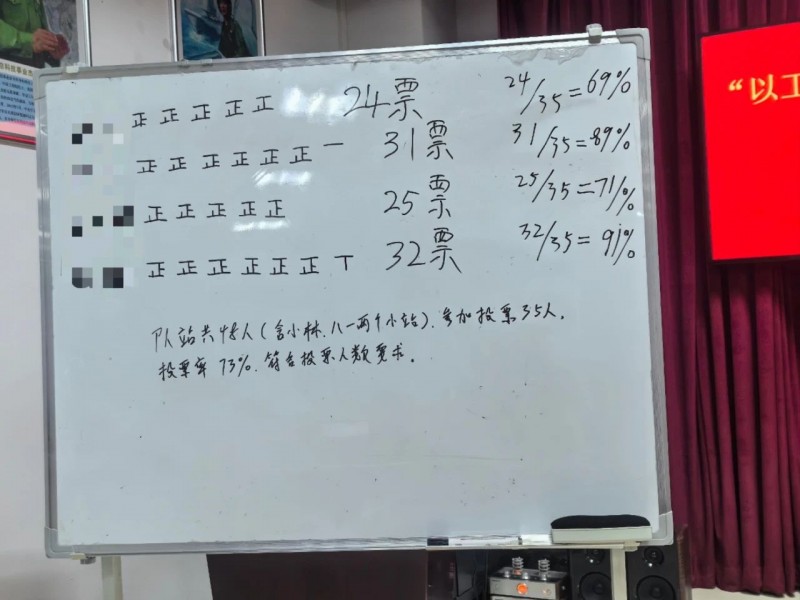 正正正正正 24票 24/35=69%
正正正正正正一 31票 31/35=89%
正正正正正 25票 25/35=71%
正正正正正正丅 32票 32/35=91%
队站共48人(含小林、八一两个小站)、参加投票35人。
投票率73%、符合投票人数要求。
“以工